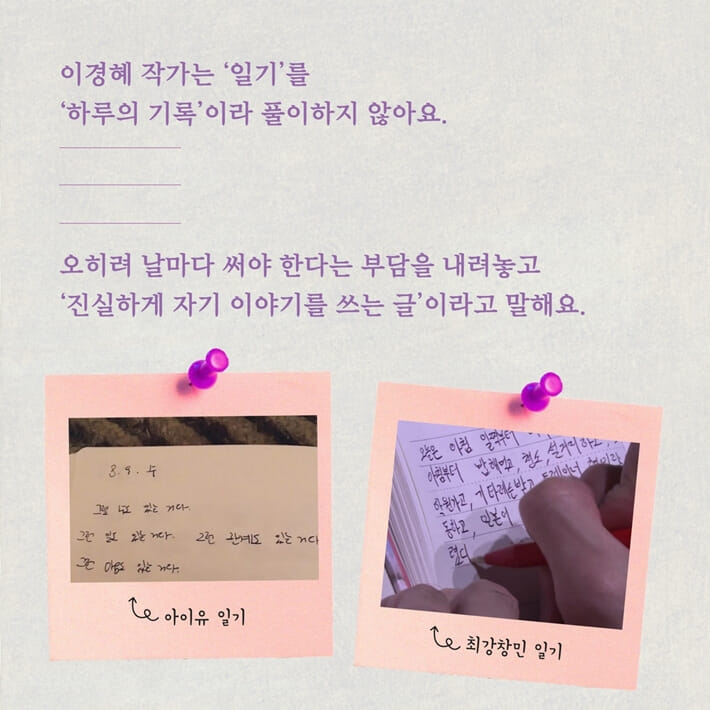 이경혜 작가는 ‘일기’를
‘하루의 기록’이라 풀이하지 않아요.
오히려 날마다 써야 한다는 부담을 내려놓고
‘진실하게 자기 이야기를 쓰는 글’이라고 말해요.
8. 9. 수
그런 날도 있는 거다.
그런 일도 있는 거다. 그런 관계도 있는 거다
그런 마음도 있는 거다.
아이유 일기
오늘은 아침 일찍부터
아침부터 밥 해먹고, 청소, 설거지 하고
학원가고, 기타레슨받고
동하고, 일본어
최강창민 일기